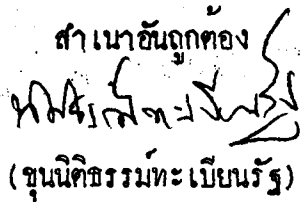 สำเนาอันถูกต้อง
(ขุนนิติธรรม์ทะเบียนรัฐ)